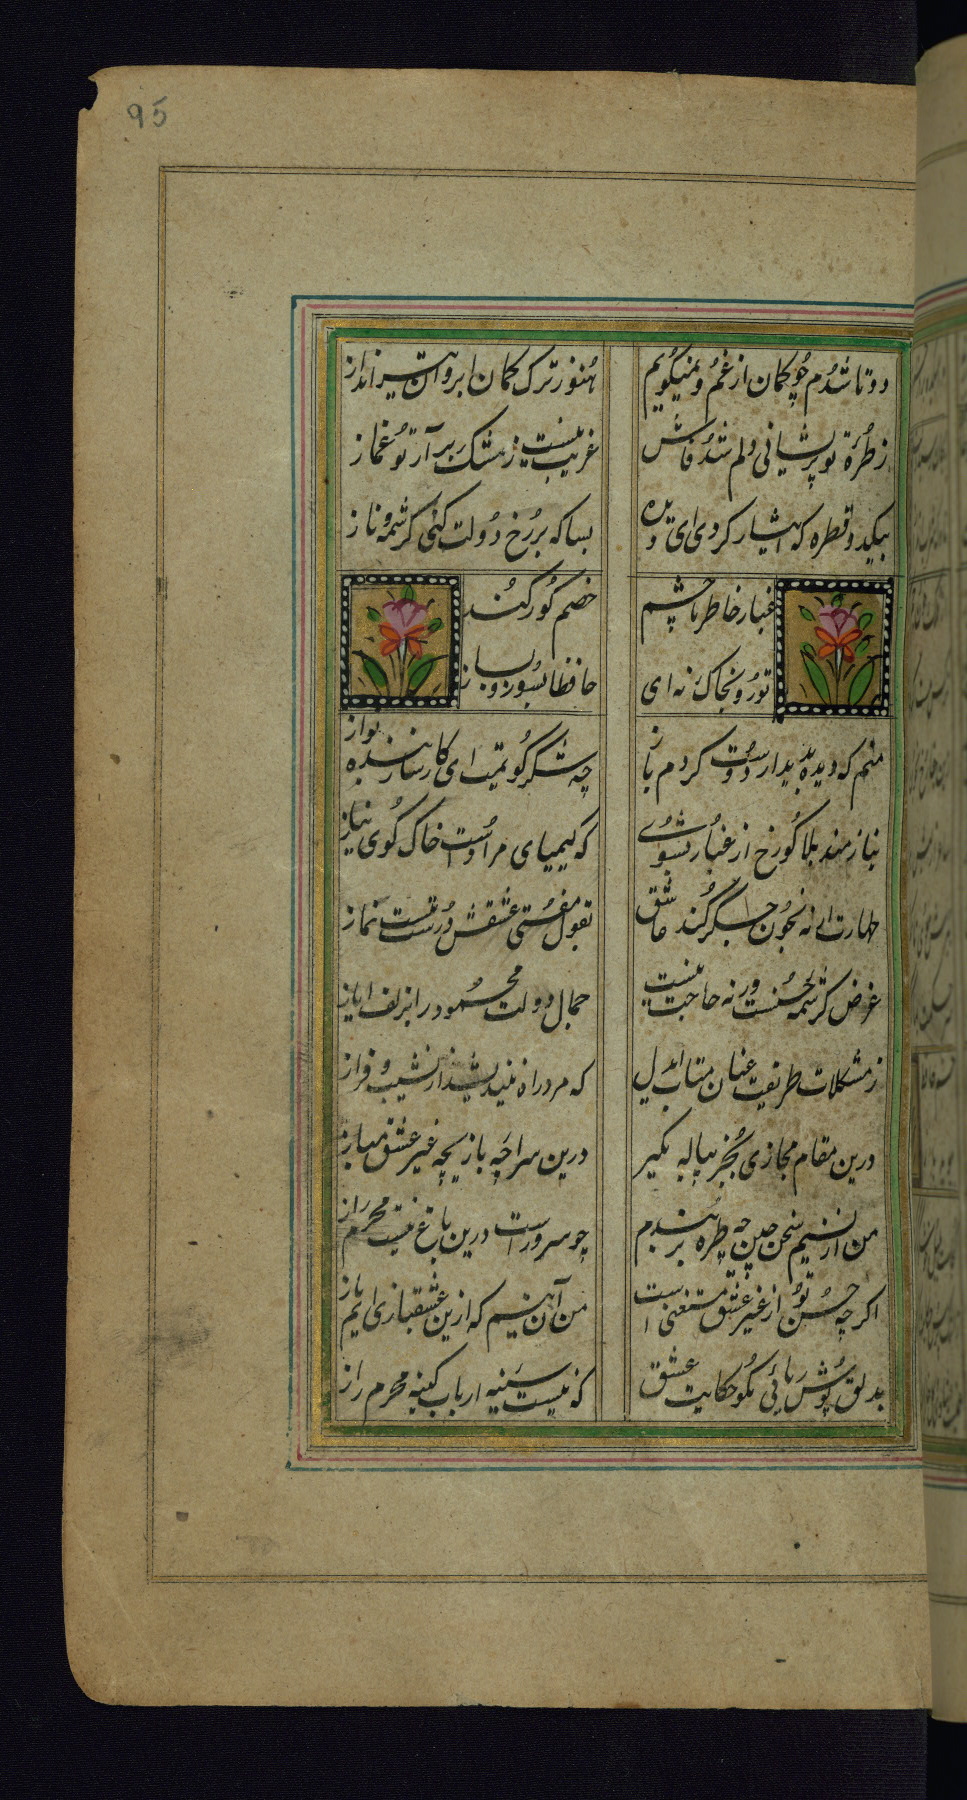 95
دوتا شدم چو کمان از غم و نمیکویم
هنوز ترک کمان ابروان تیرانداز
ز طرّهٔ تو پریشانی دلم شد فاش
غریب نیست ز مشک ار برآرد تو غماز
چکید قطره که ایثار کردی ای دیده
بسا که بر رخ دولت کنی کرشمه و ناز
غبار خاطر ما چشم
خصم کور کند
تو رو بخاک نه ای
حافظا بسوز و بساز
منم که دیده بدیدار دوست کردم باز
چه شکر گویمت ای کارساز بنده نواز
نیازمند بلا کو رخ از غبار بشوی
که کیمیای مراد است خاک کوی نیاز
طهارت ار نه بخون جگر کند عاشق
بقول مفتی عشقش درست نیست نماز
غرض کرشمه حسنست ورنه حاجت نیست
جمال دولت محمود را بزلف ایاز
ز مشکلات طریقت عنان متاب ایدل
که مرد راه نیندیشد از نشیب و فراز
درین مقام مجازی بجز پیاله مکیر
درین سراچه بازیچه غیر عشق مباز
من از نسیم سخن چین چه طره بر بندم
چو سرو راست درین باغ نیست محرم راز
اکرچه حسن تو از غیر عشق مستغنی است
من آن نیم که ازین عشقبازی ایم باز
بدلق پوش ریائی مکو حکایت عشق
که نیست سینه ارباب کینه محرم راز